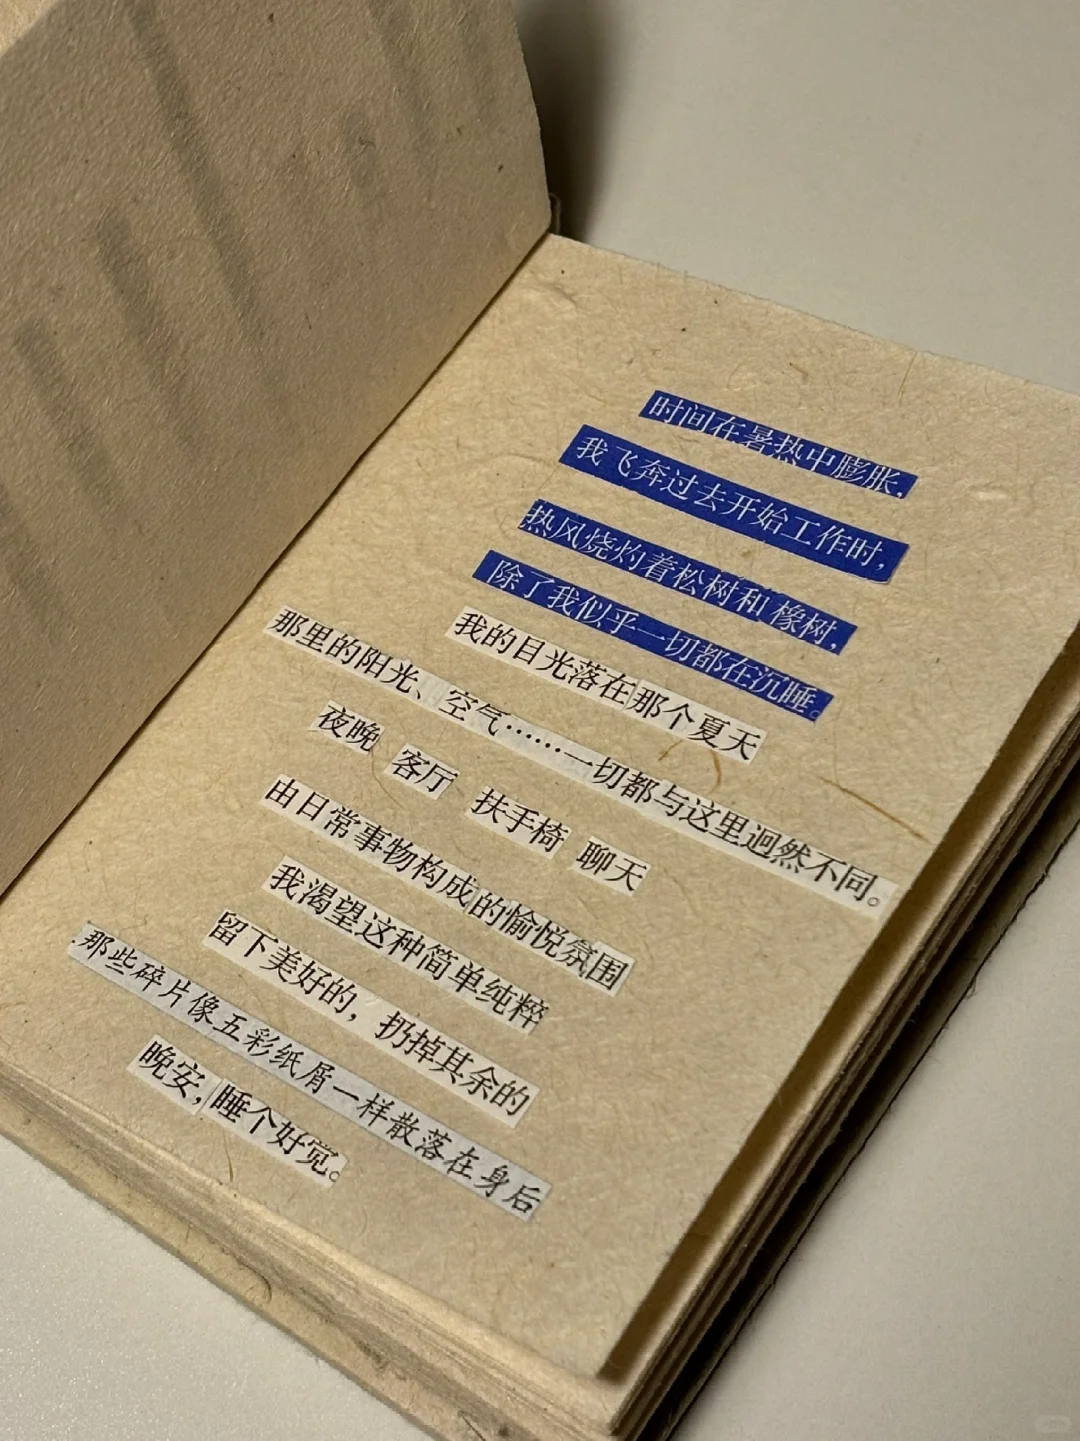 时间在暑热中膨胀，
我飞奔过去开始工作时，
热风烧灼着松树和橡树，
除了我似乎一切都在沉睡。
我的目光落在那个夏天
那里的阳光、空气……一切都与这里迥然不同。
夜晚 客厅 扶手椅 聊天
由日常事物构成的愉悦氛围
我渴望这种简单纯粹
留下美好的，扔掉其余的
那些碎片像五彩纸屑一样散落在身后
晚安，睡个好觉。